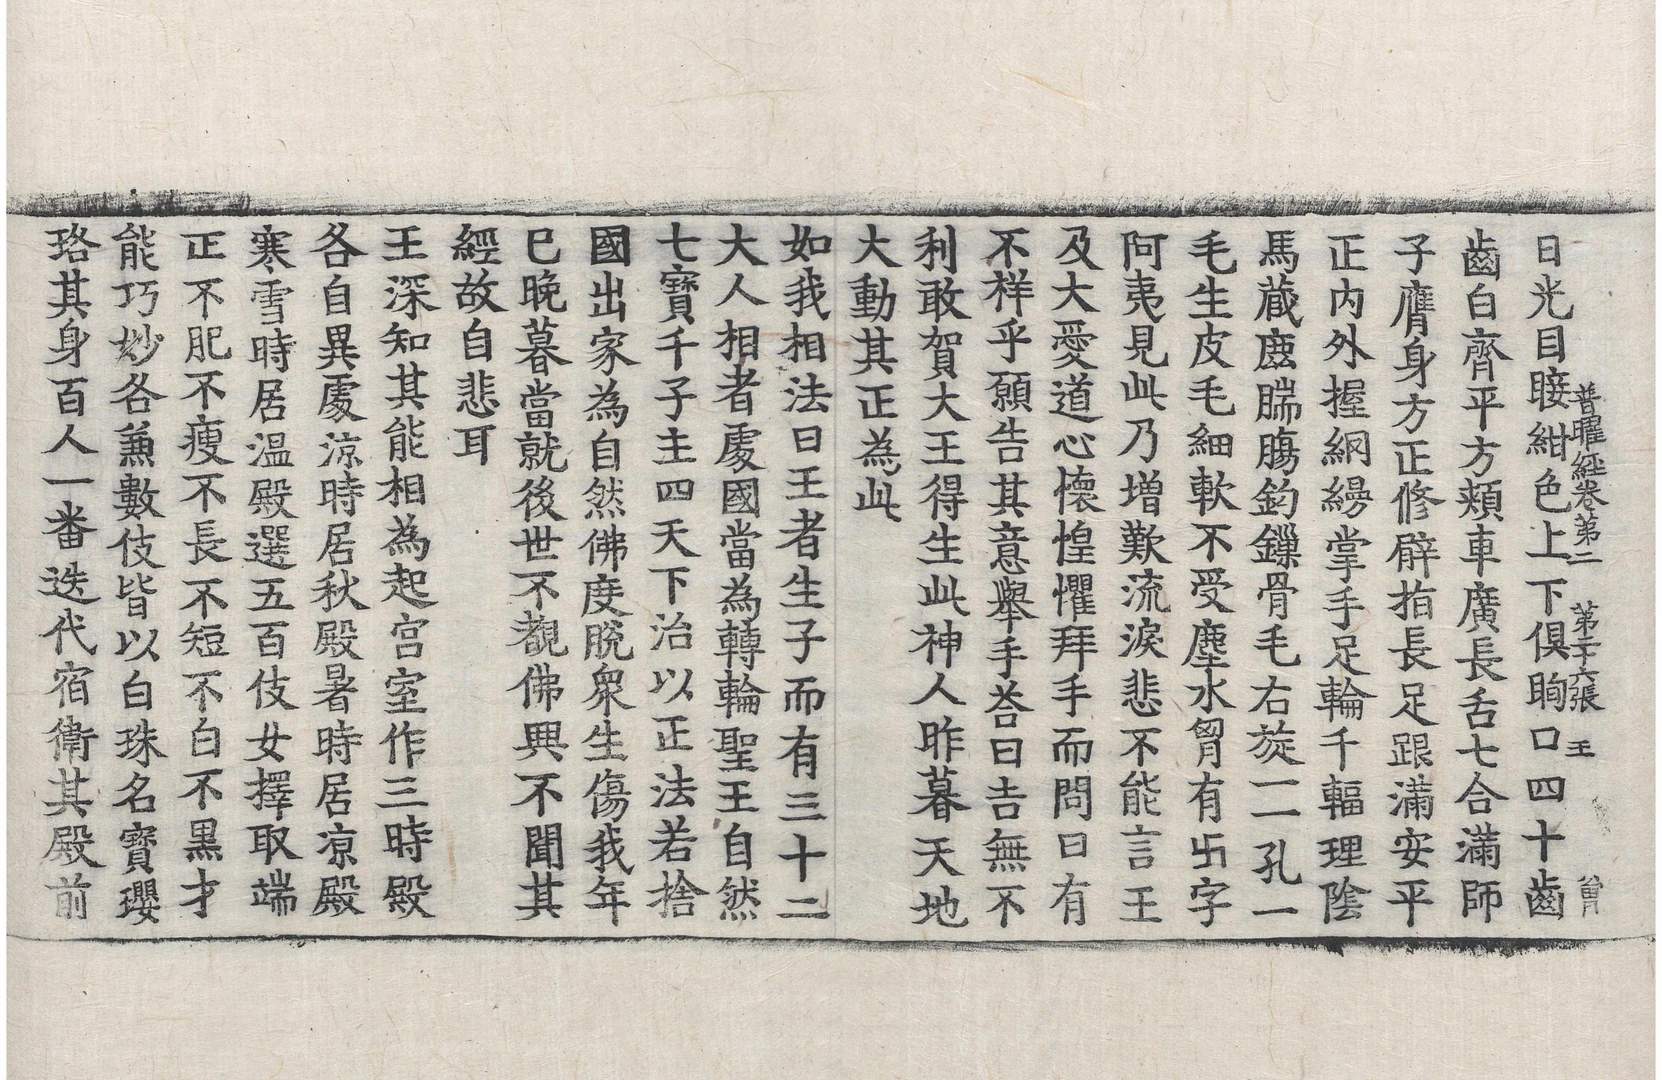 普曜經卷第二　第二十六張　王　曾
日光目睫紺色上下俱眴口四十齒
齒白齊平方頰車廣長舌七合滿師
子膺身方正修臂指長足跟滿安平
正内外握網縵掌手足輪千輻理陰
馬藏鹿腨膓鈎鏁骨毛右旋一一孔一
毛生皮毛細軟不受塵水胷有卐字
阿夷見此乃增歎流淚悲不能言王
及大愛道心懷惶懼拜手而問曰有
不祥乎願告其意舉手荅曰吉無不
利敢賀大王得生此神人昨暮天地
大動其正為此
如我相法曰王者生子而有三十二
大人相者處國當為轉輪聖王自然
七寶千子主四天下治以正法若捨
國出家為自然佛度脫衆生傷我年
已晚暮當就後世不覩佛興不聞其
經故自悲耳
王深知其能相為起宮室作三時殿
各自異處涼時居秋殿暑時居凉殿
寒雪時居溫殿選五百伎女擇取端
正不肥不瘦不長不短不白不黑才
能巧妙各兼數伎皆以白珠名寶瓔
珞其身百人一番迭代宿衛其殿前